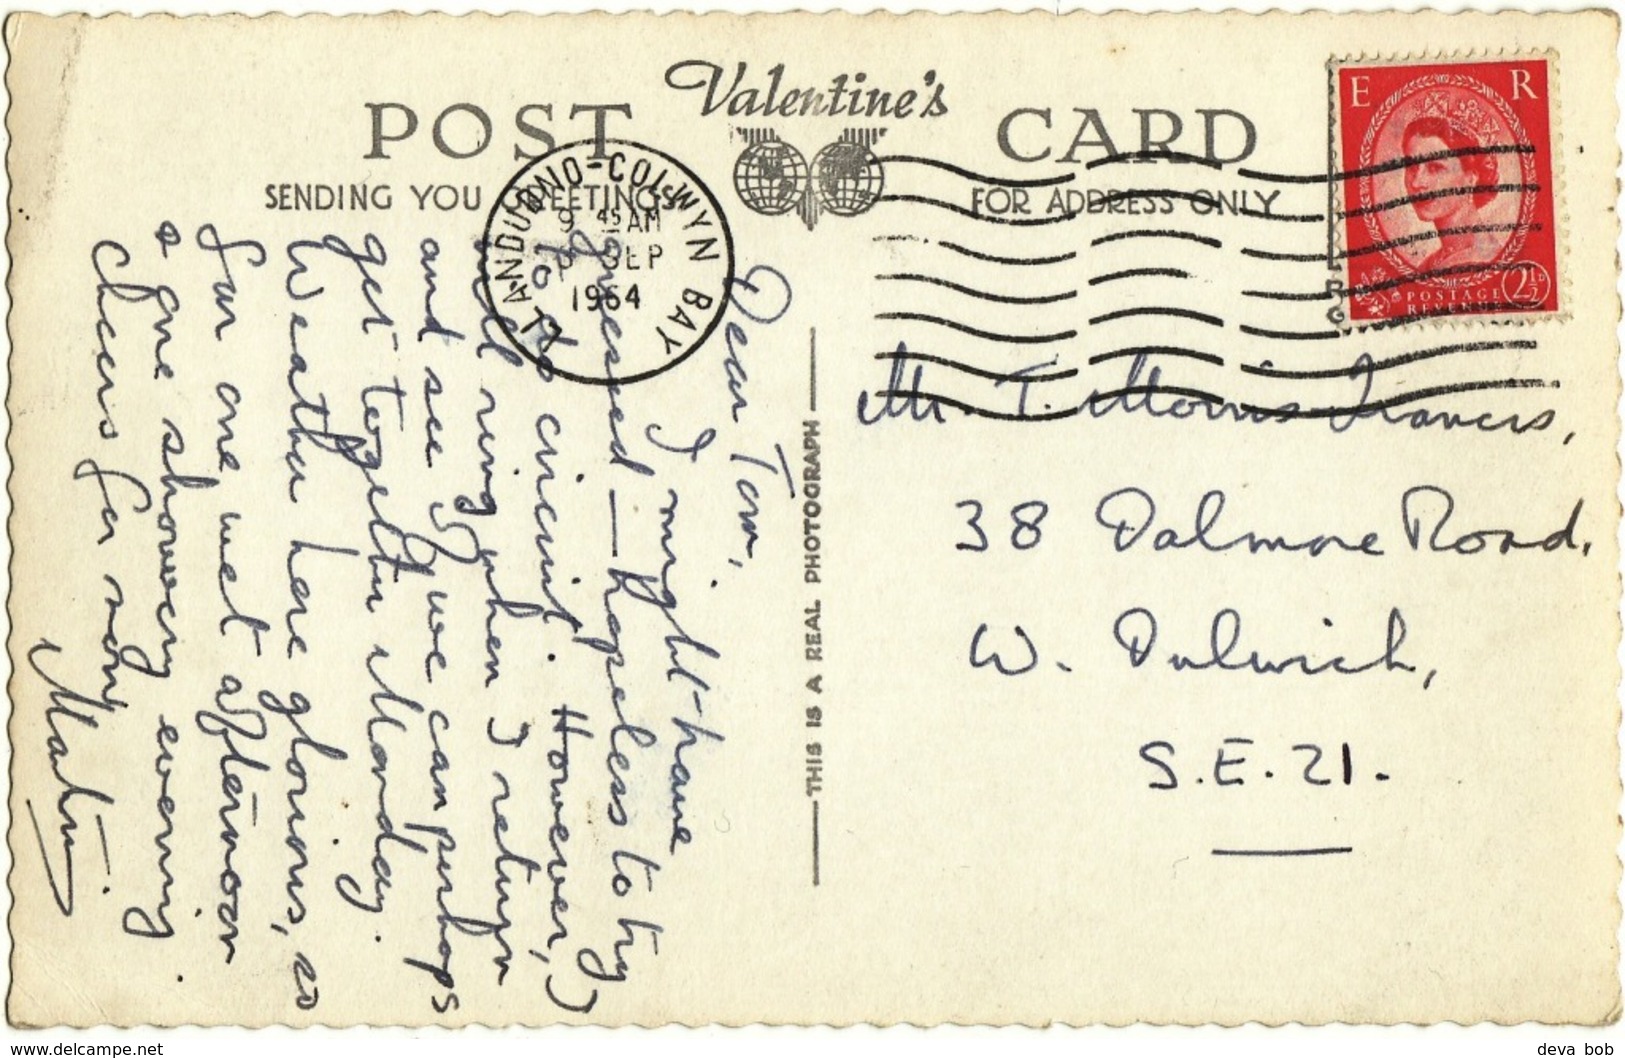 POST Valentine's CARD
SENDING YOU GREETINGS
FOR ADDRESS ONLY
LLANDUDNO-COLWYN BAY
9 45 AM
SEP
1964
E R
POSTAGE
REVENUE
2½D
Dear Tom,
I might have
guessed — hopeless to try
to do circuit. However, I
will ring when I return
and see if we can perhaps
get together Monday.
Weather here glorious, so
far one wet afternoon
& one showery evening.
Cheers for now,
Martin.
THIS IS A REAL PHOTOGRAPH
Mr. T. Morris Francis,
38 Dalmore Road,
W. Dulwich,
S.E. 21.
www.delcampe.net
deva bob